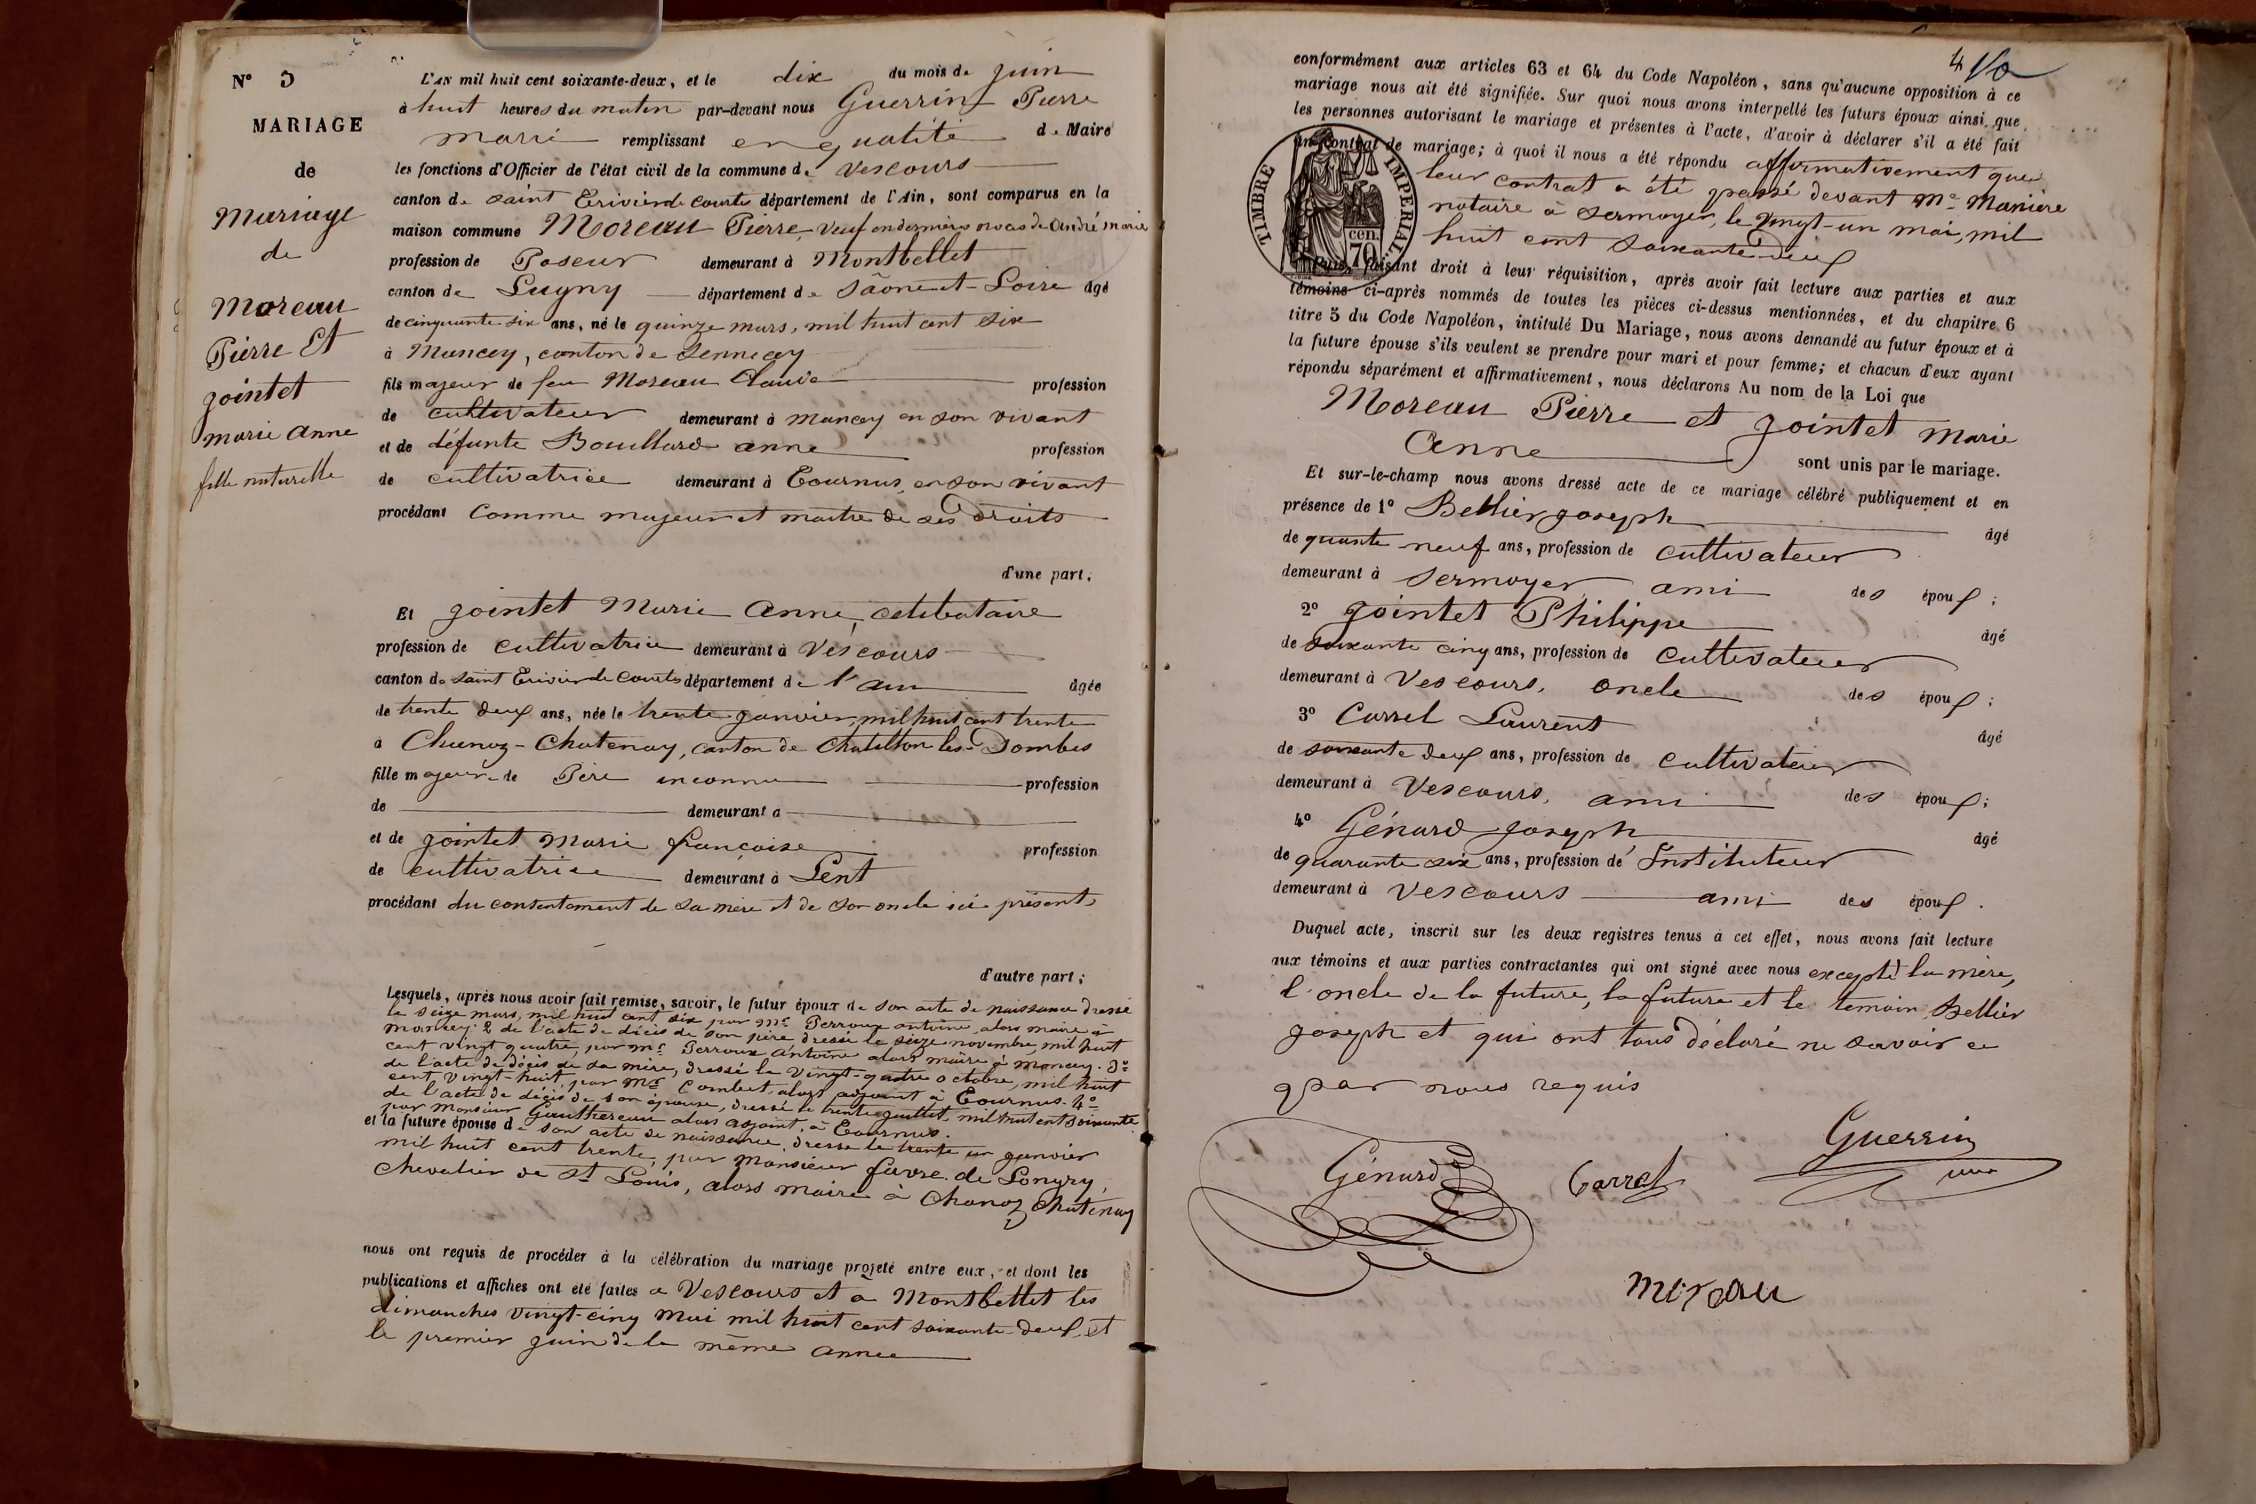 N° 5
MARIAGE
de
Mariage
de
Moreau
Pierre Et
jointet
marie anne
fille naturelle
L'AN mil huit cent soixante-deux, et le dix du mois de juin
à huit heures du matin par-devant nous Guerrin Pierre
maire remplissant en qualité de Maire
les fonctions d'Officier de l'état civil de la commune de Vescours
canton de saint Trivier de Courtes département de l'Ain, sont comparus en la
maison commune Moreau Pierre, veuf en dernières noces de André marie
profession de Poseur demeurant à Montbellet
canton de Lugny département de Sâone et Loire âgé
de cinquante six ans, né le quinze mars, mil huit cent six
à Mancey, canton de Sennecey
fils majeur de feu Moreau Claude profession
de cultivateur demeurant à mancey en son vivant
et de défunte Bouillard anne profession
de cultivatrice demeurant à Tournus, en son vivant
procédant comme majeur et maitre de ses droits
d'une part;
Et jointet Marie Anne, celibataire
profession de cultivatrice demeurant à Vescours
canton de saint Trivier de Courtes département de l'ain âgée
de trente deux ans, née le trente janvier, mil huit cent trente
à Chanoz-Chatenay, canton de Chatillon les Dombes
fille majeure de Père inconnu profession
de demeurant à
et de jointet Marie françoise profession
de cultivatrice demeurant à Lent
procédant du consentement de sa mère et de son oncle ici présents
d'autre part;
Lesquels, après nous avoir fait remise, savoir, le futur époux de son acte de naissance dressé
le seize mars, mil huit cent six par Mr Perroux antoine, alors maire à
mancey. 2° de l'acte de décès de son père dressé le seize novembre, mil huit
cent vingt quatre, par Mr Perroux Antoine alors maire à mancey. 3°
de l'acte de décès de sa mère, dressé le vingt-quatre octobre, mil huit
cent vingt-huit, par Mr Combet, alors adjoint à Tournus. 4°
de l'acte de décès de son épouse, dressé le trente juillet, mil huit cent soixante
par Monsieur Gauthereau alors adjoint, à Tournus.
et la future épouse de son acte de naissance, dressé le trente un janvier
mil huit cent trente, par Monsieur favre de Longry,
Chevalier de St Louis, alors maire à Chanoz Chatenay
nous ont requis de procéder à la célébration du mariage projeté entre eux, et dont les
publications et affiches ont été faites à Vescours et à Montbellet les
dimanches vingt-cinq mai mil huit cent soixante-deux, et
le premier juin de la même année
4
conformément aux articles 63 et 64 du Code Napoléon, sans qu'aucune opposition à ce
mariage nous ait été signifiée. Sur quoi nous avons interpellé les futurs époux ainsi que
les personnes autorisant le mariage et présentes à l'acte, d'avoir à déclarer s'il a été fait
un contrat de mariage; à quoi il nous a été répondu affirmativement que
leur contrat a été passé devant Me Manière
notaire à Sermoyer, le vingt-un mai, mil
huit cent soixante-deux
TIMBRE IMPERIAL
70 cen.
Puis, faisant droit à leur réquisition, après avoir fait lecture aux parties et aux
témoins ci-après nommés de toutes les pièces ci-dessus mentionnées, et du chapitre 6
titre 5 du Code Napoléon, intitulé Du Mariage, nous avons demandé au futur époux et à
la future épouse s'ils veulent se prendre pour mari et pour femme; et chacun d'eux ayant
répondu séparément et affirmativement, nous déclarons Au nom de la Loi que
Moreau Pierre et jointet Marie
Anne sont unis par le mariage.
Et sur-le-champ nous avons dressé acte de ce mariage célébré publiquement et en
présence de 1° Bellier joseph âgé
de quante neuf ans, profession de cultivateur
demeurant à Sermoyer, ami des époux;
2° jointet Philippe âgé
de soixante cinq ans, profession de cultivateur
demeurant à Vescours, oncle des époux;
3° Carrel Laurent âgé
de soixante deux ans, profession de cultivateur
demeurant à Vescours, ami des époux;
4° Génard joseph âgé
de quarante six ans, profession de Instituteur
demeurant à Vescours ami des époux.
Duquel acte, inscrit sur les deux registres tenus à cet effet, nous avons fait lecture
aux témoins et aux parties contractantes qui ont signé avec nous excepté la mère,
l'oncle de la future, la future et le temoin Bellier
joseph et qui ont tous déclaré ne savoir ce
par nous requis
Guerrin
Génard Carrel
maire
moreau